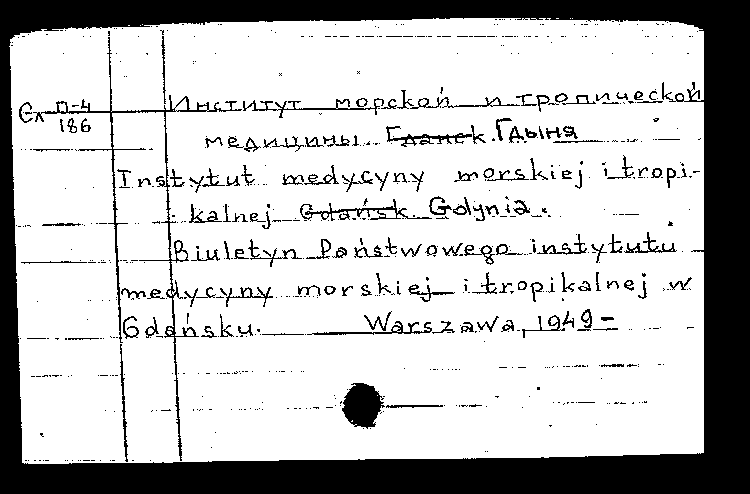 Сл П-4
186
Институт морской и тропической
медицины. Гданск. Гдыня
Instytut medycyny morskiej i tropi-
kalnej Gdańsk Gdynia.
Biuletyn Państwowego instytutu
medycyny morskiej i tropikalnej w
Gdańsku. Warszawa, 1949-